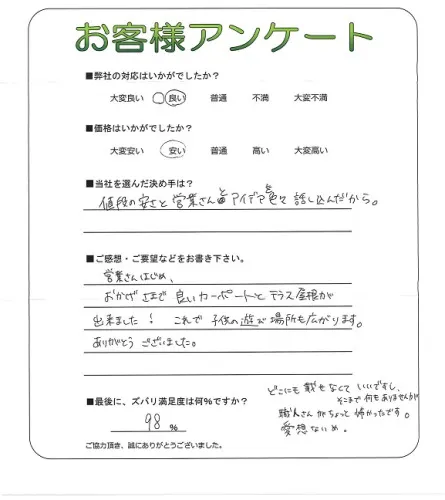 お客様アンケート
■弊社の対応はいかがでしたか?
大変良い 良い 普通 不満 大変不満
■価格はいかがでしたか?
大変安い 安い 普通 高い 大変高い
■当社を選んだ決め手は?
値段の安さと営業さんとアイデア色々話し込んだから。
■ご感想・ご要望などをお書き下さい。
営業さんはじめ、
おかげさまで良いカーポートとテラス屋根が
出来ました! これで子供の遊ぶ場所も広がります。
ありがとうございました。
■最後に、ズバリ満足度は何%ですか?
98 %
どこにも載せなくていいですし、
そこまで何もありませんが
職人さんがちょっと怖かったです。
愛想ないめ。
ご協力頂き、誠にありがとうございました。